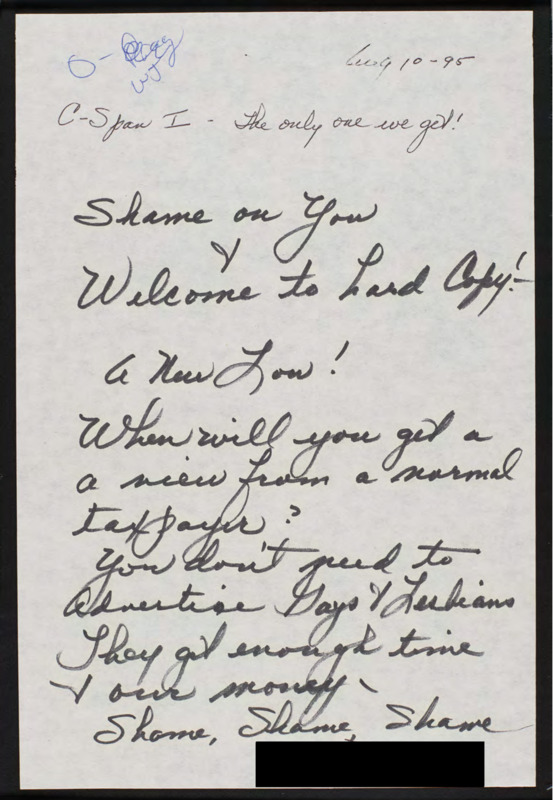 Aug 10-95
C-Span I - The only one we get!
Shame on You
&
Welcome to hard Copy!-
A New Low!
When will you get a
a view from a normal
taxpayer?
You don't need to
Advertise Gays & Lesbians
They get enough time
& our money -
Shame, Shame, Shame